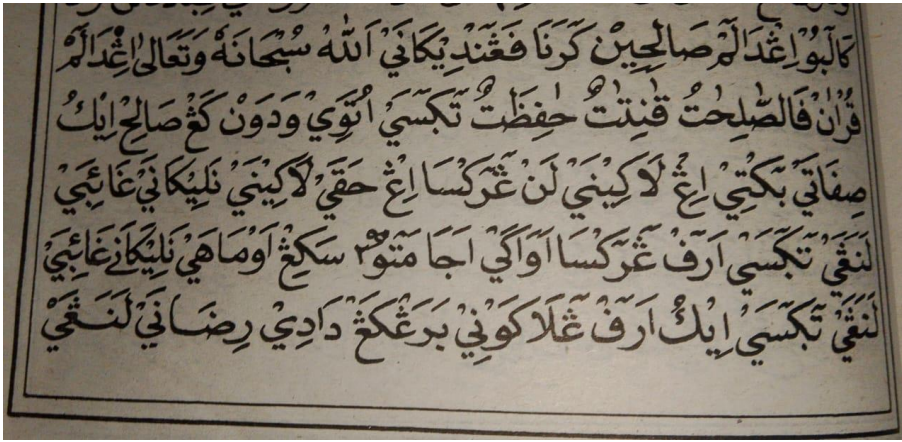 كَالَبُوْ اِڠْدَالَمْ صَالِحِيْن كَرَنَا فَڠَنْدِيْكَانَيْ اَللّٰه سُبْحَانَهُ وَتَعَالىٰ اِڠْدَالَمْ
قُرْاٰنْ فَالصّٰلِحٰتُ قٰنِتٰتٌ حٰفِظٰتٌ تَكْسَيْ اُتَوِيْ وَدَوْن كَڠْ صَالِحْ اِيْكُ
صِفَاتَيْ بَكْتِيْ اِڠْ لَاكِيْنَيْ لَنْ ڠَرَكْسَا اِڠْ حَقَيْ لَاكِيْنَيْ نَلِيْكَانَيْ غَائِبَيْ
لَنَڠَيْ تَكْسَيْ اَرَفْ ڠَرَكْسَا اَوَاكَيْ اَجَا مَتَوْ٢ سَكِڠْ اَوْمَاهَيْ نَلِيْكَانَيْ غَائِبَيْ
لَنَڠَيْ تَكْسَيْ اِيْكُ اَرَفْ ڠَلَاكَوْنِيْ بَرَڠْكَڠْ دَادِيْ رِضَانَيْ لَنَڠَيْ